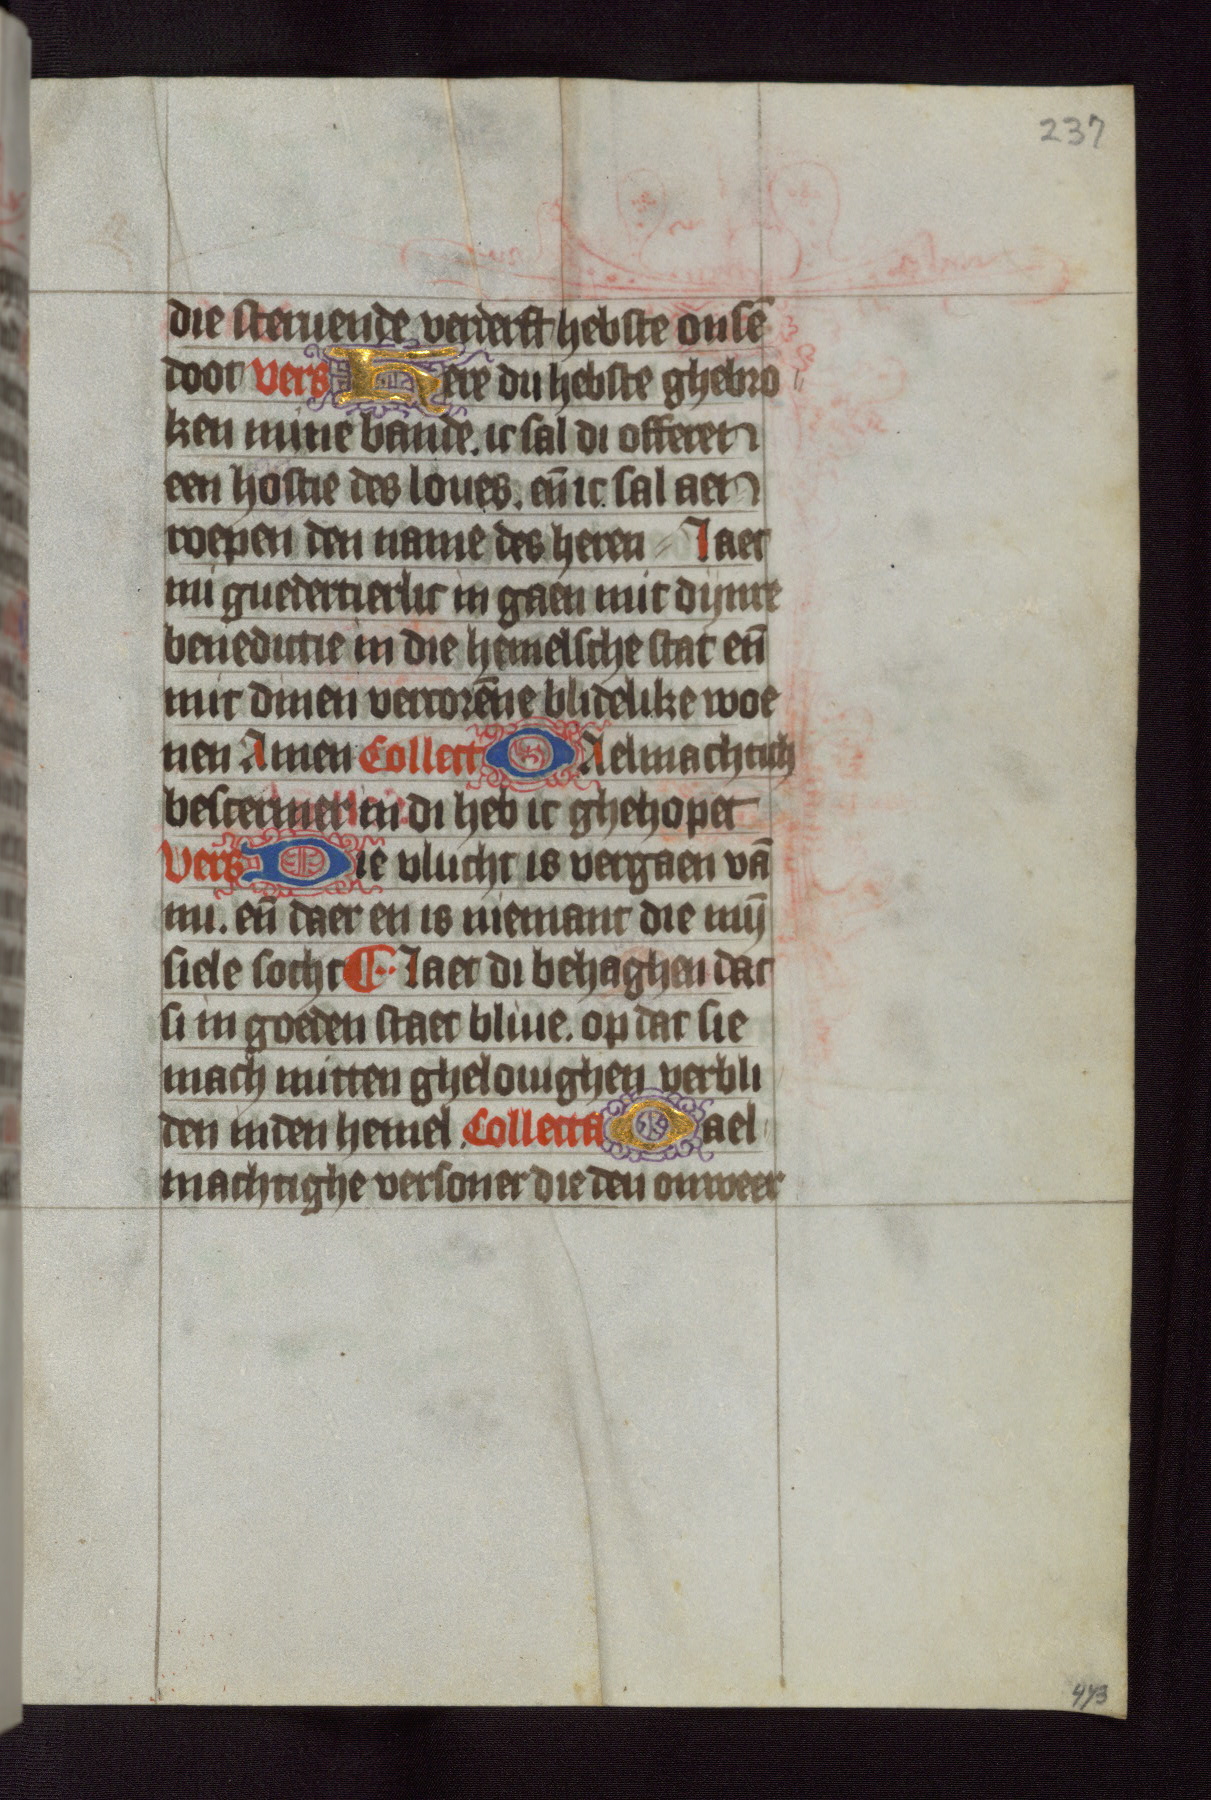 237
die steruende verderft hebste onsē
doot vers Here du hebste ghebro
ken mine bande. ic sal di offeren
een hostie des loues. eñ ic sal aen
roepen den name des heren Laet
mi guedertierlic in gaen mit dijnre
benedictie in die hemelsche stat eñ
mit dinen vercorēne blidelike woe
nen Amen Collect O Aelmachtich
beschermer in di heb ic ghehopet
Vers Die vlucht is vergaen vā
mi. eñ daer en is niemant die mijn
siele socht Laet di behaghen dat
si in goeden staet bliue. op dat sie
mach mitten ghelouighen verbli
den inden hemel. Collecta O ael
machtighe versoner die den onweer
473